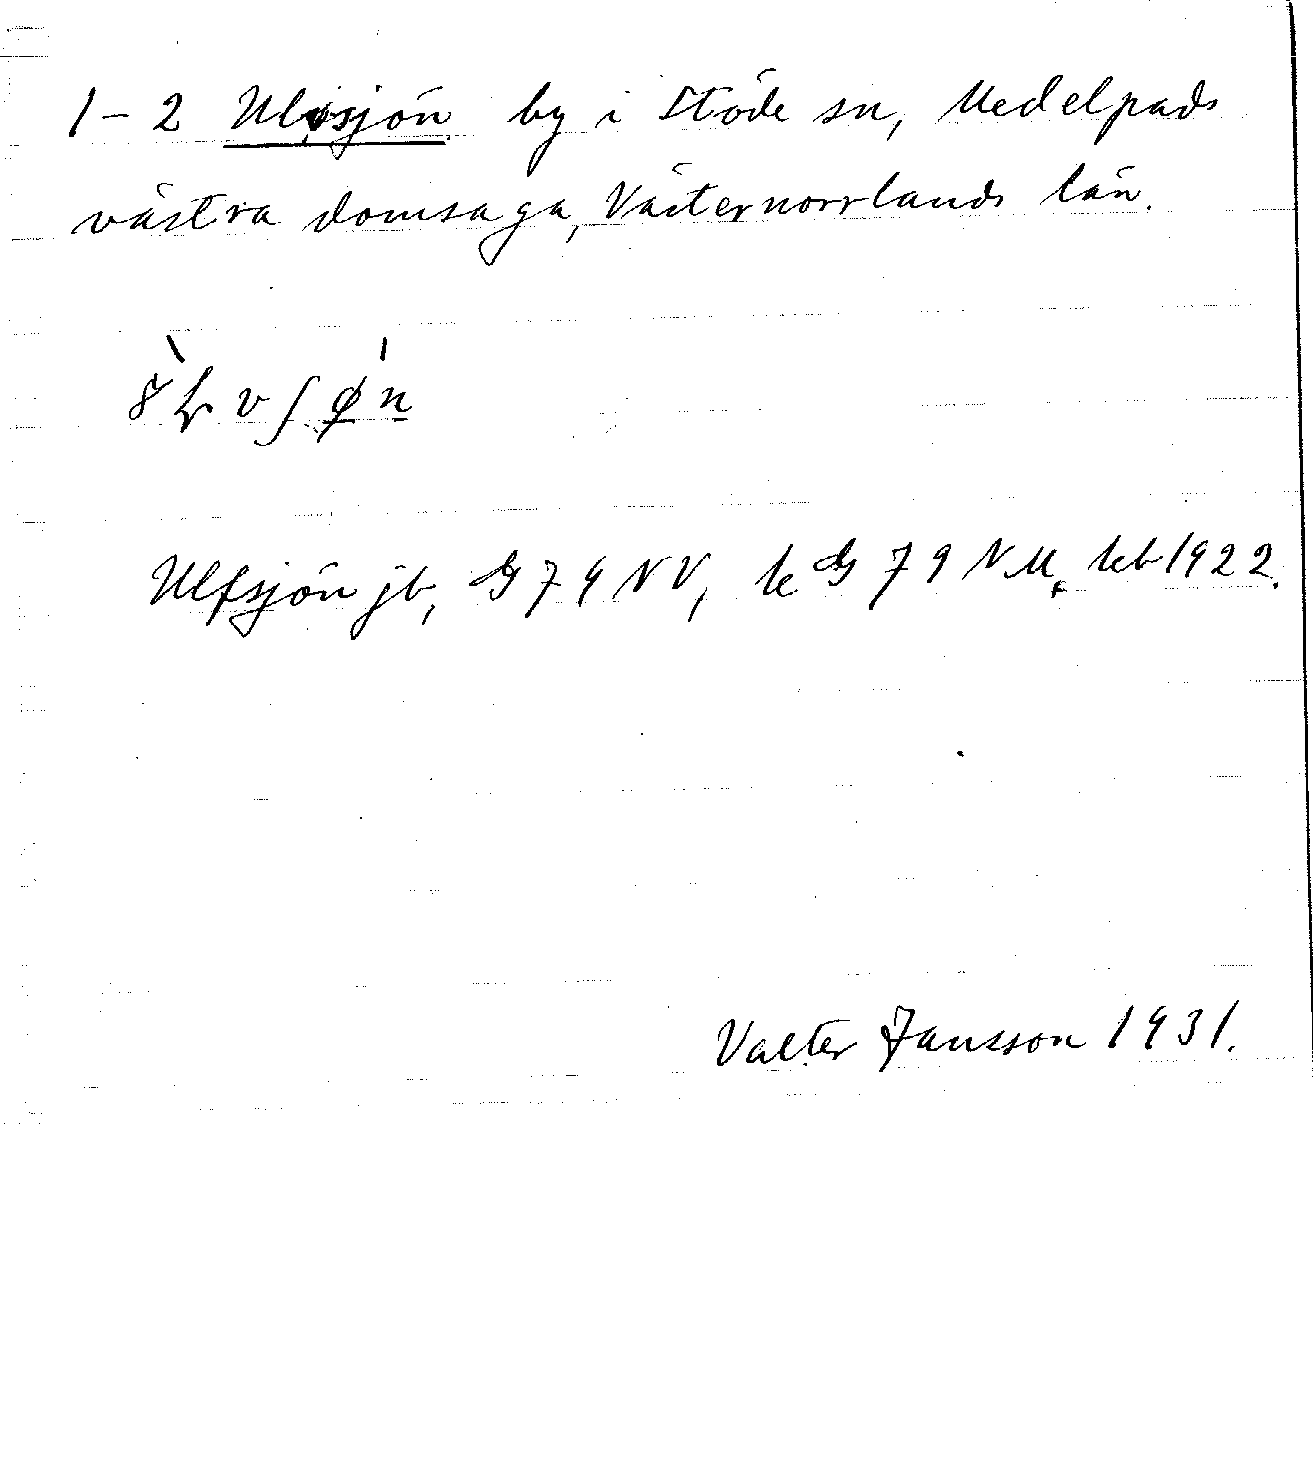 1-2 Ulvsjön by i Stöde sn, Medelpads
västra domsaga, Västernorrlands län.
Ulfsjön jb, GS 79 NV, k GS 79 NV. kb 1922.
Valter Jansson 1931.